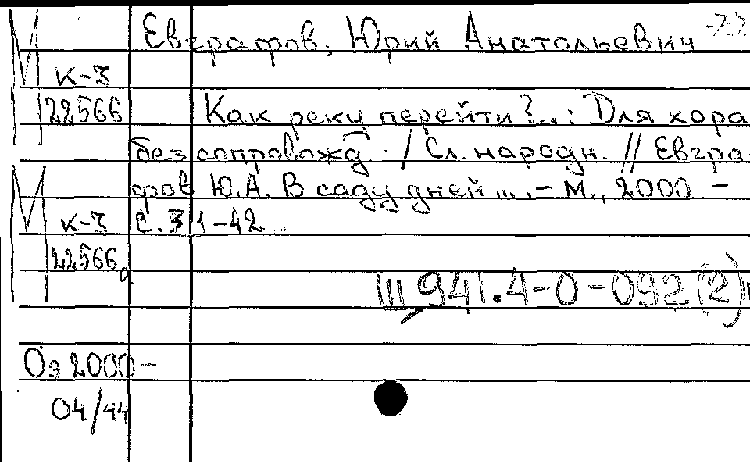 Евграфов, Юрий Анатольевич
М к-3
22566 Как реку перейти?..: Для хора
без сопровожд. / Сл. народн. // Евгра-
фов Ю.А. В саду дней... - М., 2000 -
М к-3 С. 31-42
22566а
Ш 941.4-0-092(2)
Оз 2000-
04/44